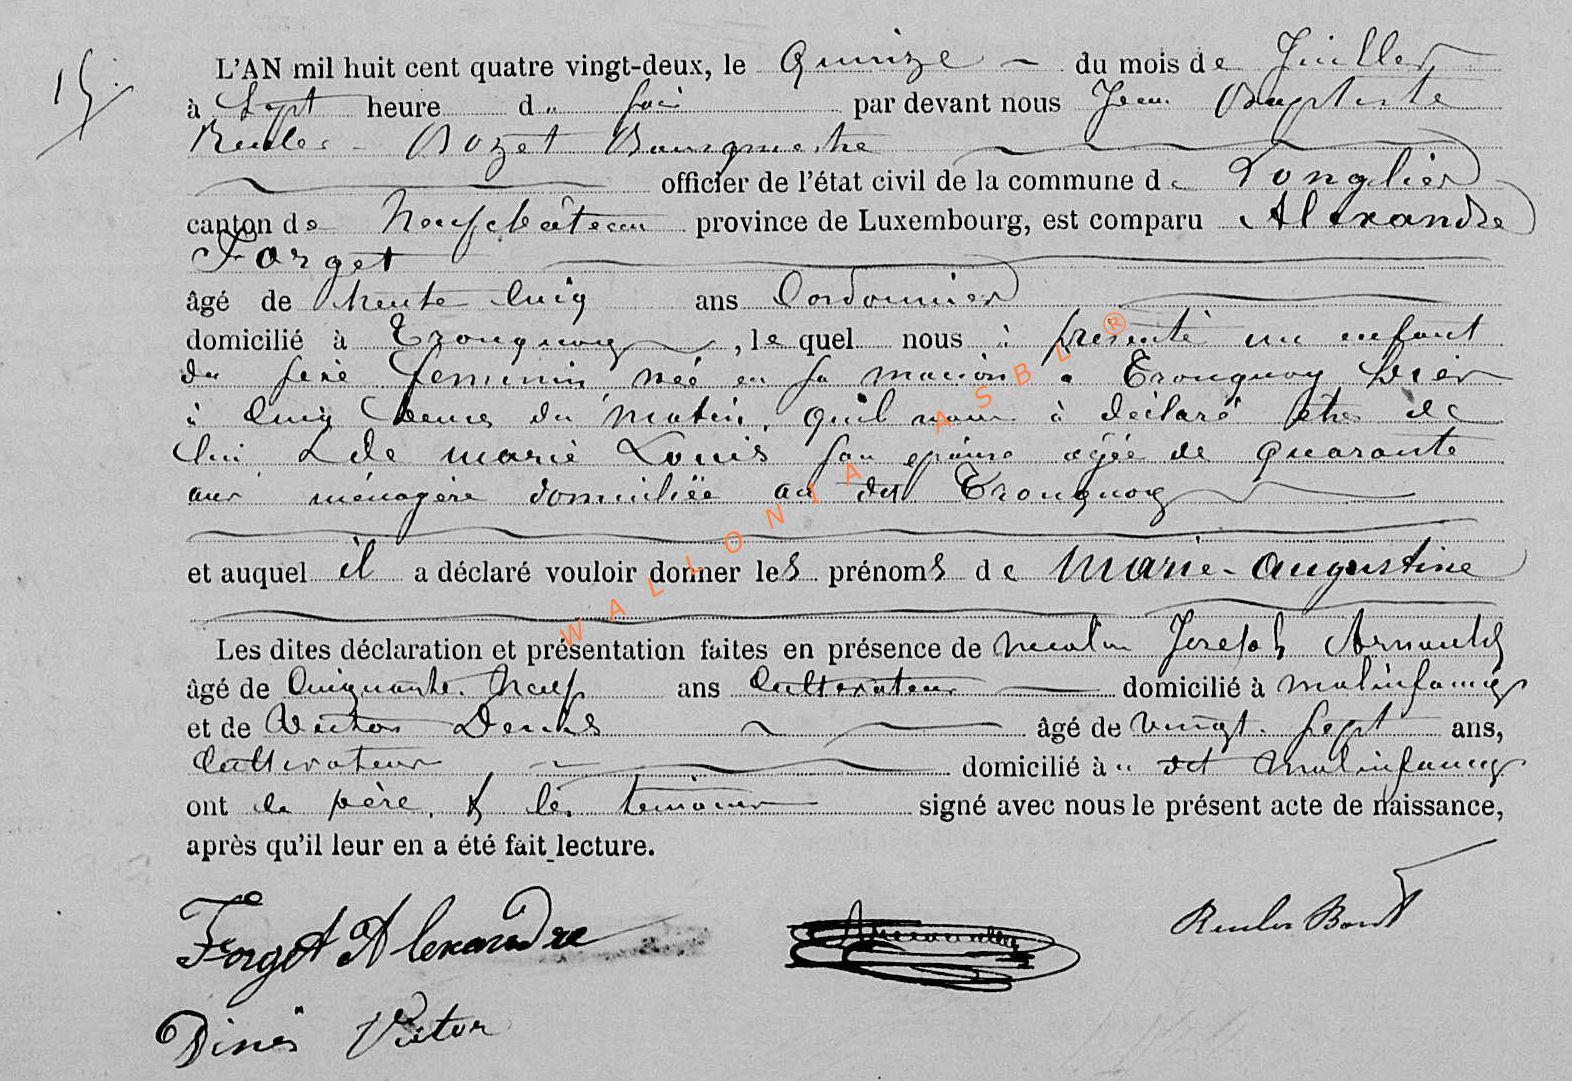 15.
L'AN mil huit cent quatre vingt-deux, le Quinze du mois de Juillet
à Sept heure du soir par devant nous Jean Baptiste
Reuler Bozet Bourgmestre
officier de l'état civil de la commune de Longlier
canton de Neufchâteau province de Luxembourg, est comparu Alexandre
Forget
âgé de trente cinq ans Cordonnier
domicilié à Tronquoy, le quel nous à présenté un enfant
du sexe feminin, née en sa maison à Tronquoy hier
à cinq heures du matin, qu'il nous à déclaré être de
lui & de marie Louis son épouse agée de quarante
ans ménagère domiciliée au dit Tronquoy
et auquel il a déclaré vouloir donner les prénoms de Marie-Augustine
Les dites déclaration et présentation faites en présence de Joseph
âgé de Cinquante. Neuf ans Cultivateur domicilié à malinfaing
et de Victor Denis âgé de vingt. sept ans,
Cultivateur domicilié à dit malinfaing
ont le père, & les temoins signé avec nous le présent acte de naissance,
après qu'il leur en a été fait lecture.
Forget Alexandre
Reuler Bozet
Dinés Victor
WALLONIA ASBL ®